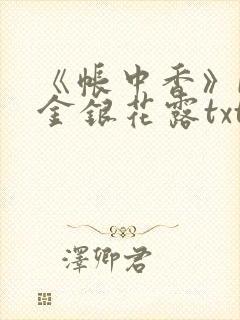 《帳中香》
金銀花露txt
澤卿君